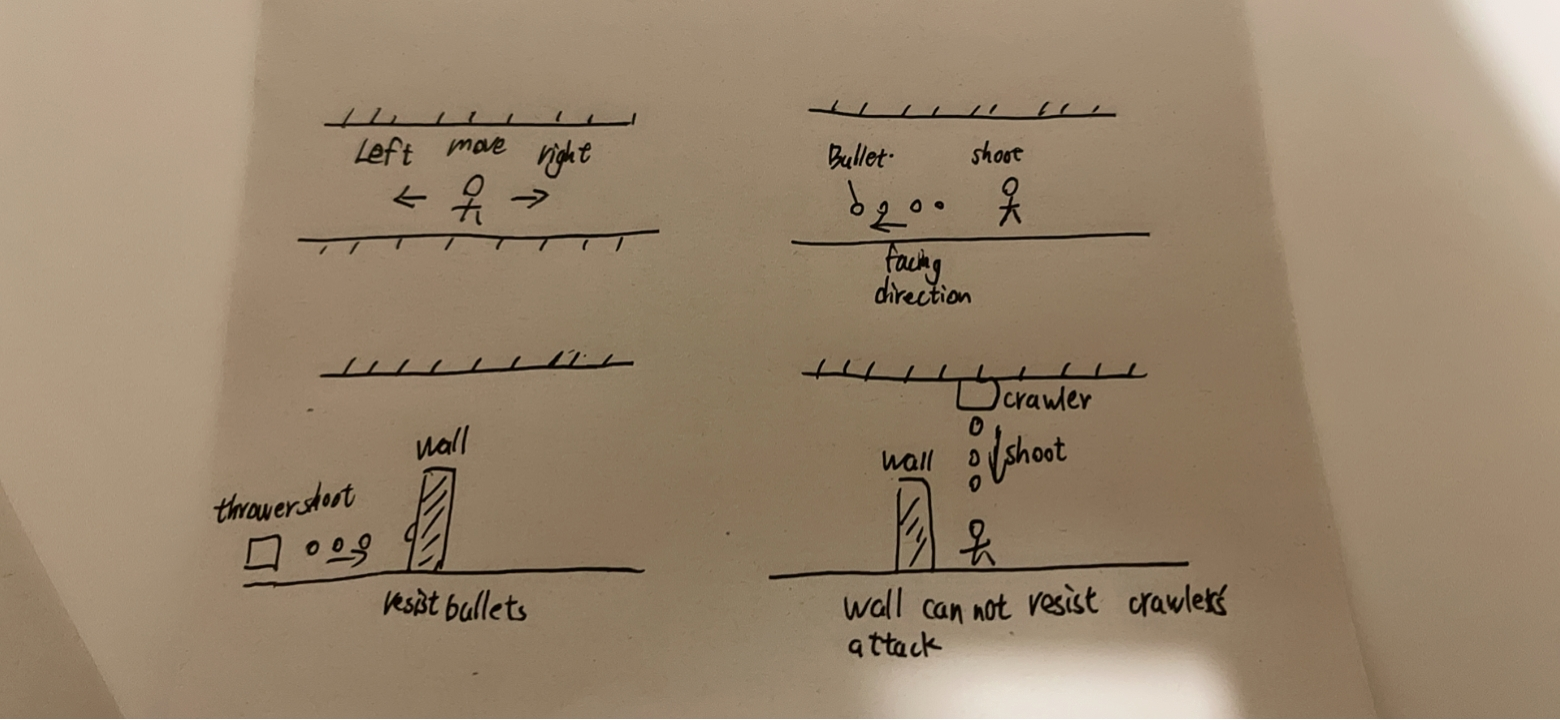 Left move right
Bullet. shoot
facing
direction
wall
thrower shoot
resist bullets
crawler
shoot
wall
wall can not resist crawler's
attack